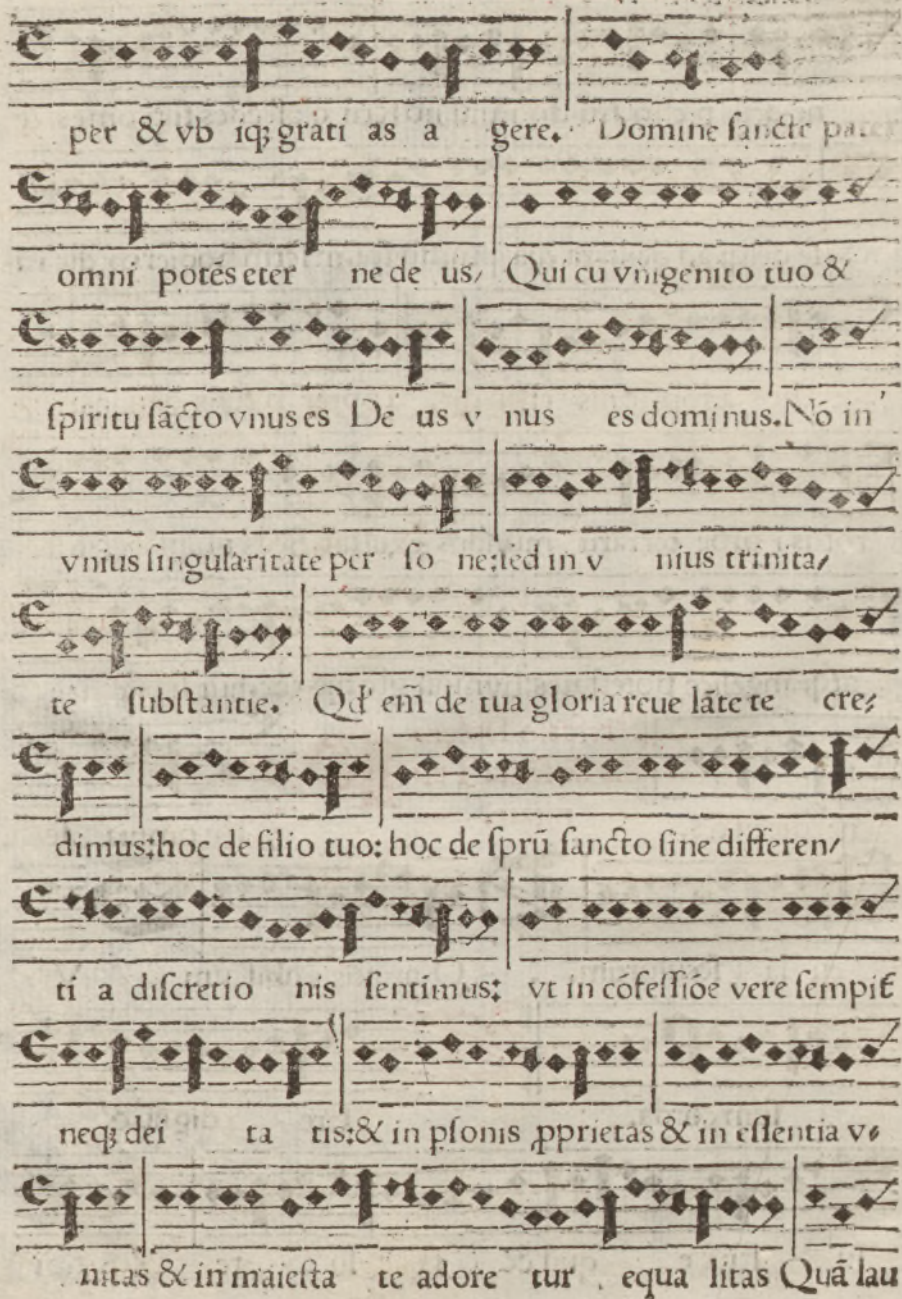 per & vb iqꝫ grati as a gere. Domine sancte pater
omni potẽs eter ne de us/ Qui cu vnigenito tuo &
spiritu sãcto vnus es De us v nus es dominus. Nõ in
vnius singularitate per so ne: sed in v nius trinita/
te substantie. Qđ em̃ de tua gloria reue lãte te cre/
dimus: hoc de filio tuo: hoc de sprũ sancto sine differen/
ti a discretio nis sentimus: vt in cõfessiõe vere sempit̃
neqꝫ dei ta tis: & in ꝑsonis ꝓprietas & in essentia v/
nitas & in maiesta te adore tur equa litas Quã lau